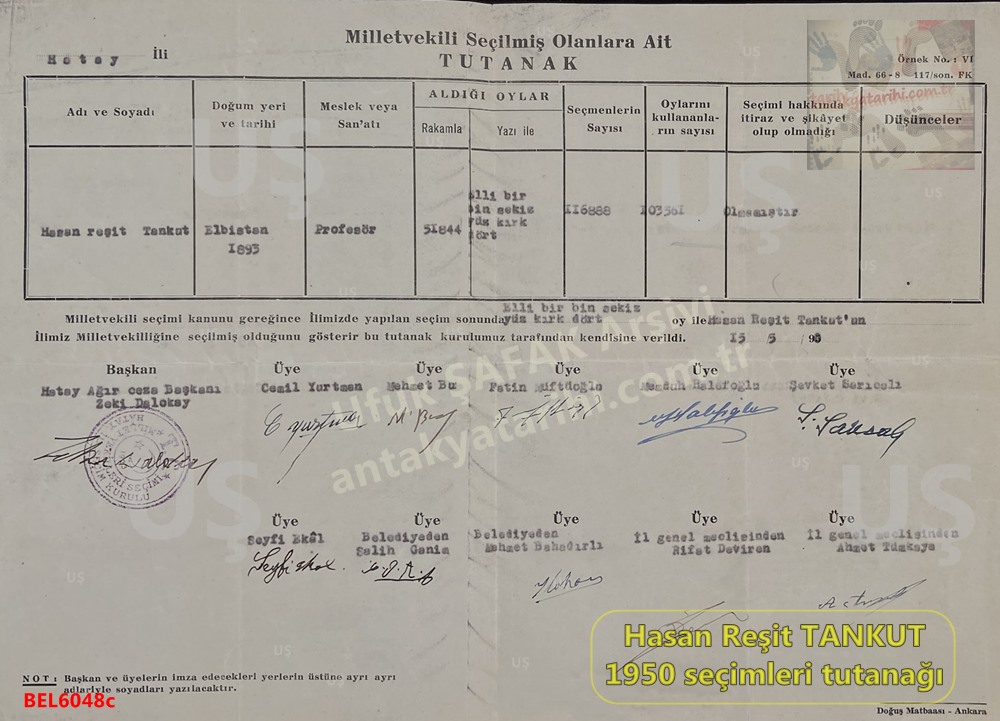 Milletvekili Seçilmiş Olanlara Ait
TUTANAK
Hatay İli
Örnek No.: VI
Mad. 66-8 117/son. FK
antakyatarihi.com.tr
Adı ve Soyadı
Doğum yeri
ve tarihi
Meslek veya
San'atı
ALDIĞI OYLAR
Rakamla
Yazı ile
Seçmenlerin
Sayısı
Oylarını
kullananla-
rın sayısı
Seçimi hakkında
itiraz ve şikâyet
olup olmadığı
Düşünceler
Hasan reşit Tankut
Elbistan
I893
Profesör
5I844
Elli bir
bin sekiz
yüz kırk
dört
II6888
I0356I
Olmamıştır
Elli bir bin sekiz
Milletvekili seçimi kanunu gereğince İlimizde yapılan seçim sonunda yüz kırk dört oy ile Hasan Reşit Tankut'un
İlimiz Milletvekilliğine seçilmiş olduğunu gösterir bu tutanak kurulumuz tarafından kendisine verildi. I5 5 /95
Başkan Üye Üye Üye Üye Üye
Hatay Ağır ceza Başkanı
Zeki Dalokay
Cemil Yurtman
Mehmet Bu
Fatin Müftüoğlu
Memduh Halefoğlu
Şevket Sarıcalı
 İLLETVEKİLLERİ SEÇİMİ
KURULU
HATAY
Ufuk ŞAFAK Arşivi
antakyatarihi.com.tr
UŞ
Üye Üye Üye Üye Üye
Seyfi Ekâl
Belediyeden
Salih Ganim
Belediyeden
Mehmet Bahadırlı
İl genel meclisinden
Rifat Deviren
İl genel meclisinden
Ahmet Tümkaya
Hasan Reşit TANKUT
1950 seçimleri tutanağı
NOT: Başkan ve üyelerin imza edecekleri yerlerin üstüne ayrı ayrı
adlariyle soyadları yazılacaktır.
BEL6048c
Doğuş Matbaası - Ankara